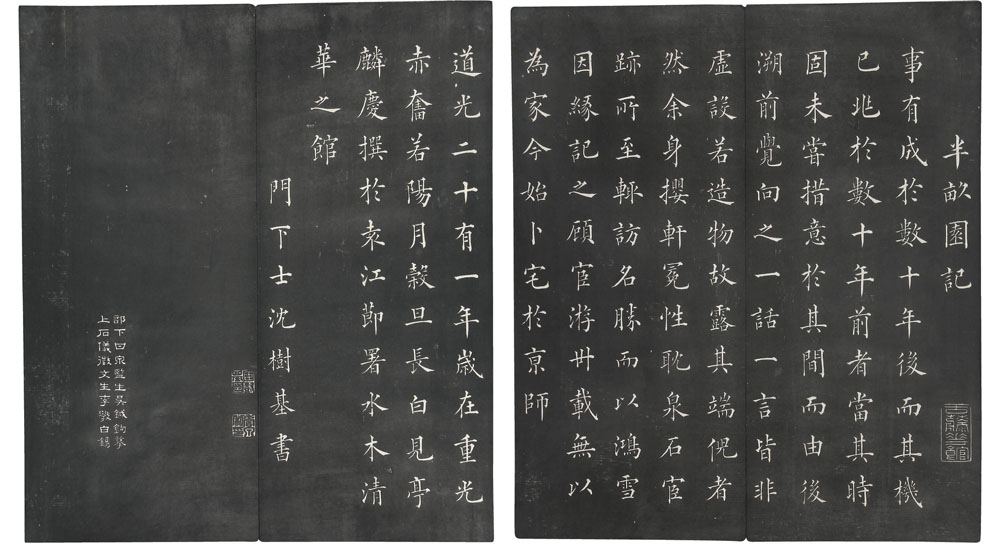 半畝園記
事有成於數十年後而其機
已兆於數十年前者當其時
固未嘗措意於其間而由後
溯前覺向之一話一言皆非
虛設若造物故露其端倪者
然余身攖軒冕性耽泉石宦
跡所至輕訪名勝而以鴻雪
因緣記之顧宦游卅載無以
為家今始卜宅於京師
道光二十有一年歲在重光
赤奮若陽月穀旦長白見亭
麟慶撰於袁江節署水木清
華之館
門下士沈樹基書
上石儀徵文生李